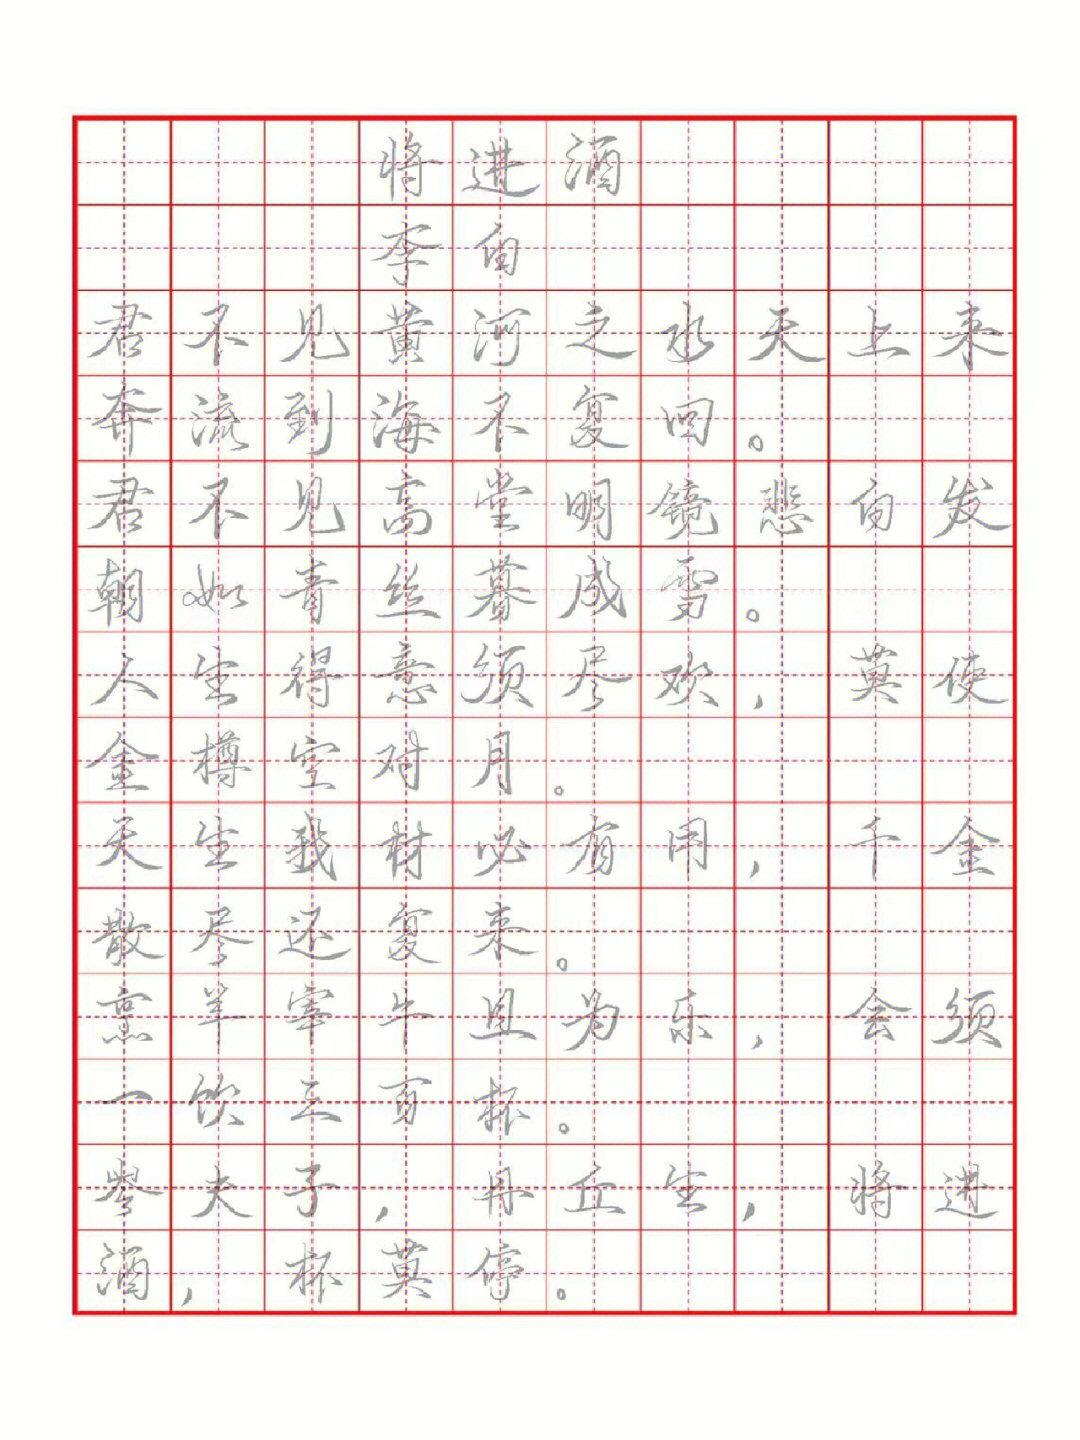 将进酒
李白
君不见黄河之水天上来
奔流到海不复回。
君不见高堂明镜悲白发
朝如青丝暮成雪。
人生得意须尽欢，莫使
金樽空对月。
天生我材必有用，千金
散尽还复来。
烹羊宰牛且为乐，会须
一饮三百杯。
岑夫子，丹丘生，将进
酒，杯莫停。